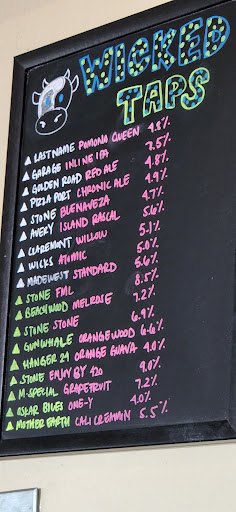 WICKED
TAPS
LAST NAME POMONA QUEEN 4.8%
GARAGE INLINE IPA 7.5%
GOLDEN ROAD RED ALE 4.8%
PIZZA PORT CHRONIC ALE 4.9%
STONE BUENAVEZA 4.7%
AVERY ISLAND RASCAL 5.6%
CLAREMONT WILLOW 5.1%
WICKS ATOMIC 5.0%
MADEWEST STANDARD 5.6%
STONE FML 8.5%
BEACHWOOD MELROSE 7.2%
STONE STONE 6.9%
GUNWHALE ORANGEWOOD 6.6%
HANGER 24 ORANGE GUAVA 4.0%
STONE ENJOY BY 420 9.0%
M-SPECIAL GRAPEFRUIT 7.2%
OSKAR BLUES ONE-Y 4.0%
MOTHER EARTH CALI CREAMIN 5.5%